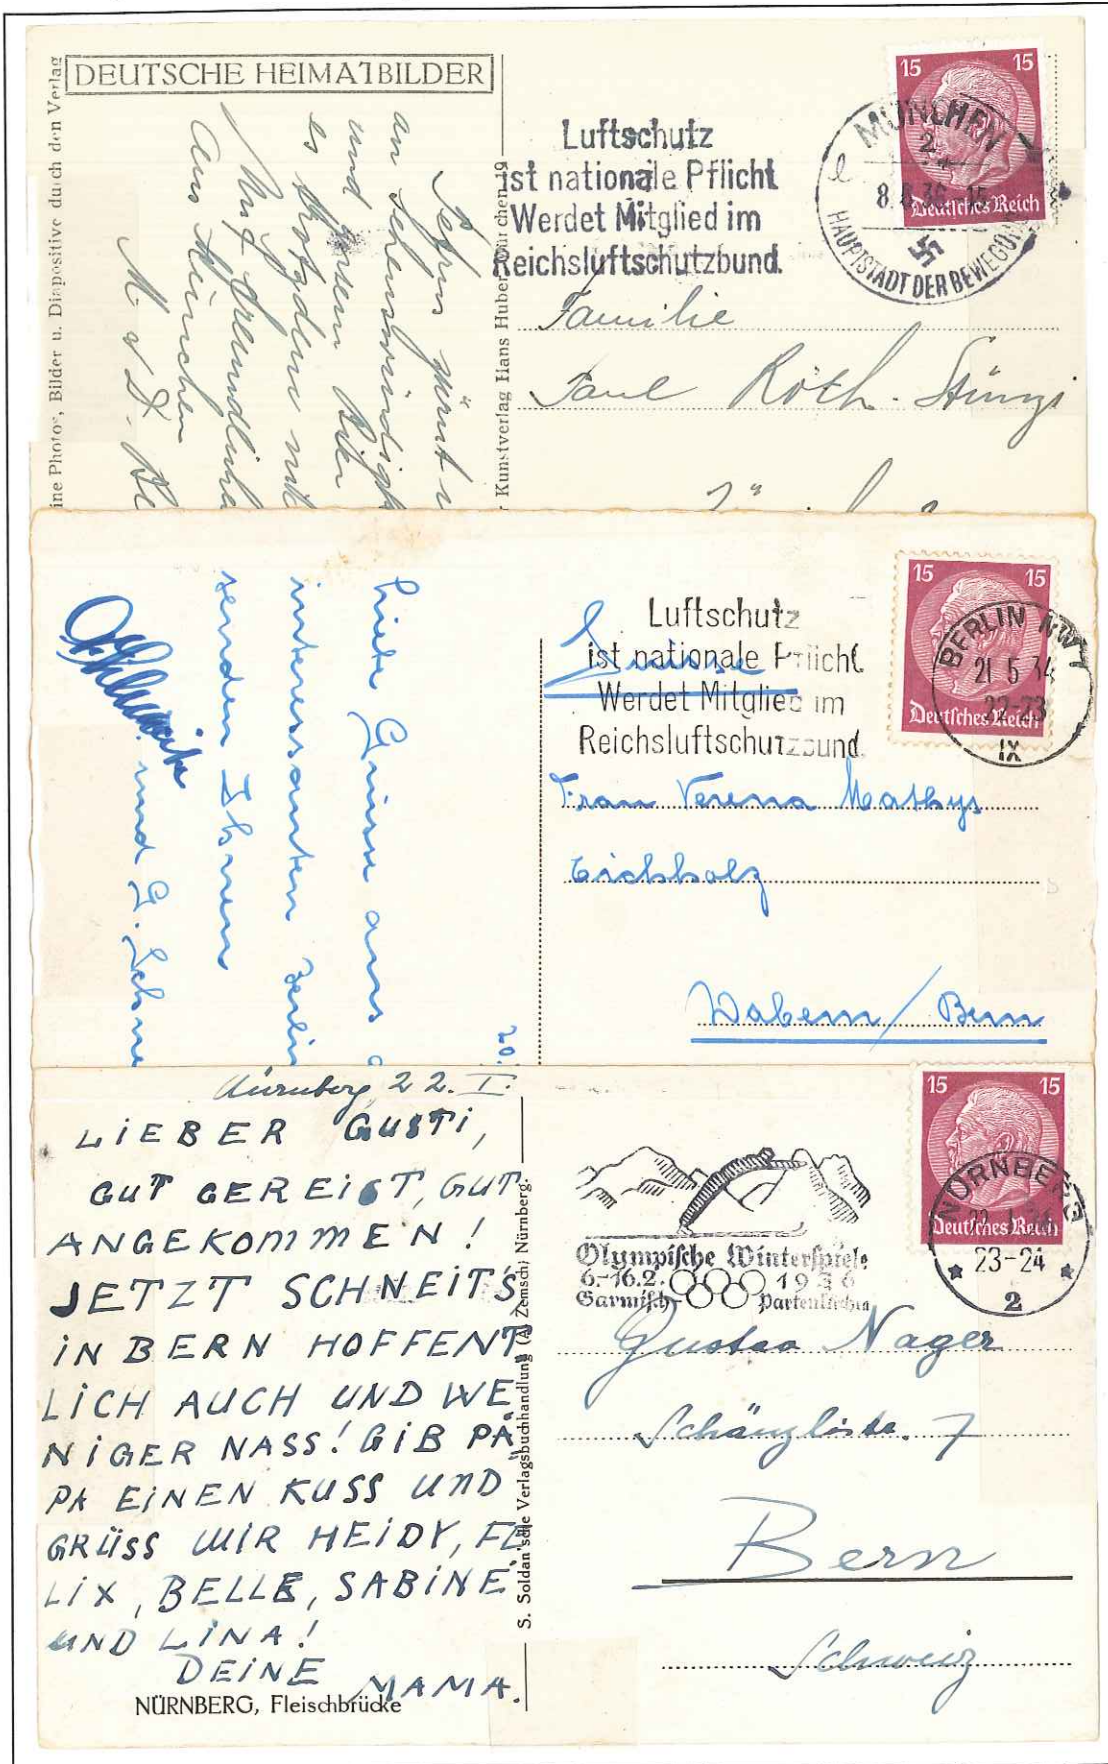 DEUTSCHE HEIMATBILDER
ine Photos, Bilder u. Diapositive durch den Verlag
an Sehenswürdigk
und gutem Bier
es trotzdem
Aus München
Kunstverlag Hans Huber München 19
Luftschutz
ist nationale Pflicht
Werdet Mitglied im
Reichsluftschutzbund.
MÜNCHEN
2
8. 36 -15
HAUPTSTADT DER BEWEGUNG
15 15
Deutsches Reich
Familie
Paul Roth-Stünzi
liebe Grüsse aus
interessanten Berlin
senden Ihnen
und G.
20.
Luftschutz
ist nationale Pflicht
Werdet Mitglied im
Reichsluftschutzbund.
15 15
Deutsches Reich
BERLIN NW 7
21 5 34
22-23
IX
Suisse
Frau Verena Mathys
Eichholz
Wabern / Bern
Nürnberg, 22. I.
LIEBER GUSTI,
GUT GEREIST, GUT
ANGEKOMMEN!
JETZT SCHNEIT'S
IN BERN HOFFENT
LICH AUCH UND WE
NIGER NASS! GIB PA
PA EINEN KUSS UND
GRÜSS MIR HEIDY, FE
LIX, BELLE, SABINE
UND LINA!
DEINE MAMA.
NÜRNBERG, Fleischbrücke
S. Soldan'sche Verlagsbuchhandlung (A. Zemsch) Nürnberg.
Olympische Winterspiele
6.-16.2. 1936
Garmisch- Partenkirchen
15 15
Deutsches Reich
NÜRNBERG
22. 1. 36
23-24
2
Gustav Nager
Schänzlistr. 7
Bern
Schweiz